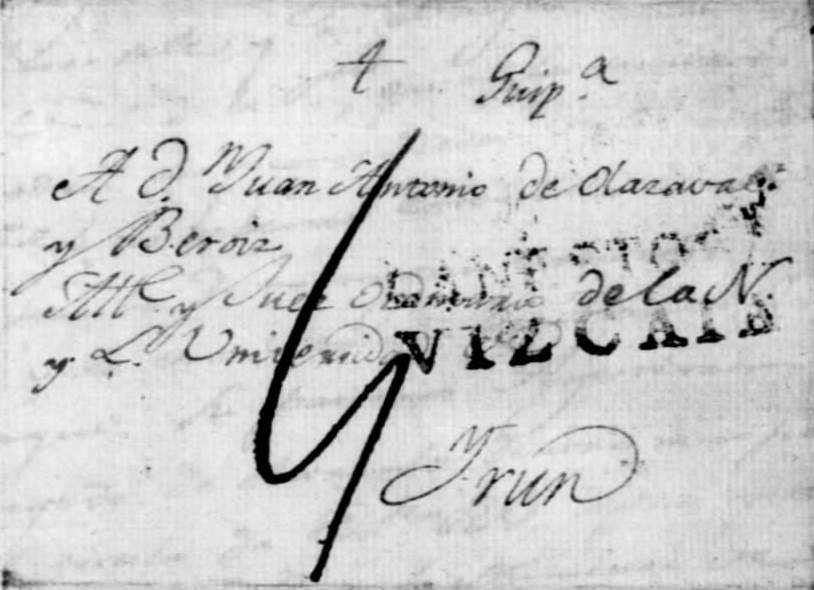 Guip.a
A D. Juan Antonio de Olazaval
y Beroiz
Alle y Juez Ordinario de la N.
y L. Universidad
VIZCAIA
Yrun